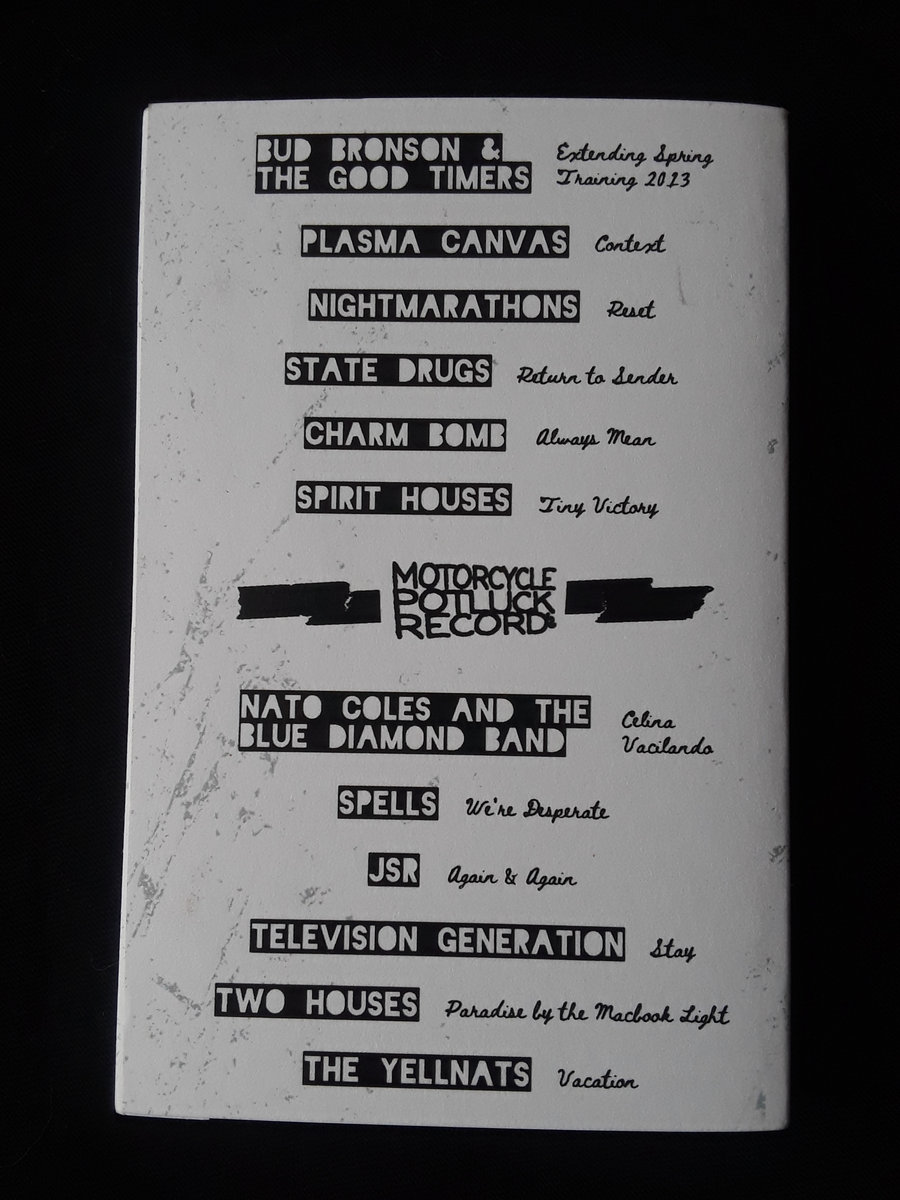 BUD BRONSON & Extending Spring
THE GOOD TIMERS Training 2013
PLASMA CANVAS Context
NIGHTMARATHONS Reset
STATE DRUGS Return to Sender
CHARM BOMB Always Mean
SPIRIT HOUSES Tiny Victory
MOTORCYCLE
POTLUCK
RECORDS
NATO COLES AND THE Celina
BLUE DIAMOND BAND Vacilando
SPELLS We're Desperate
JSR Again & Again
TELEVISION GENERATION Stay
TWO HOUSES Paradise by the Macbook Light
THE YELLNATS Vacation